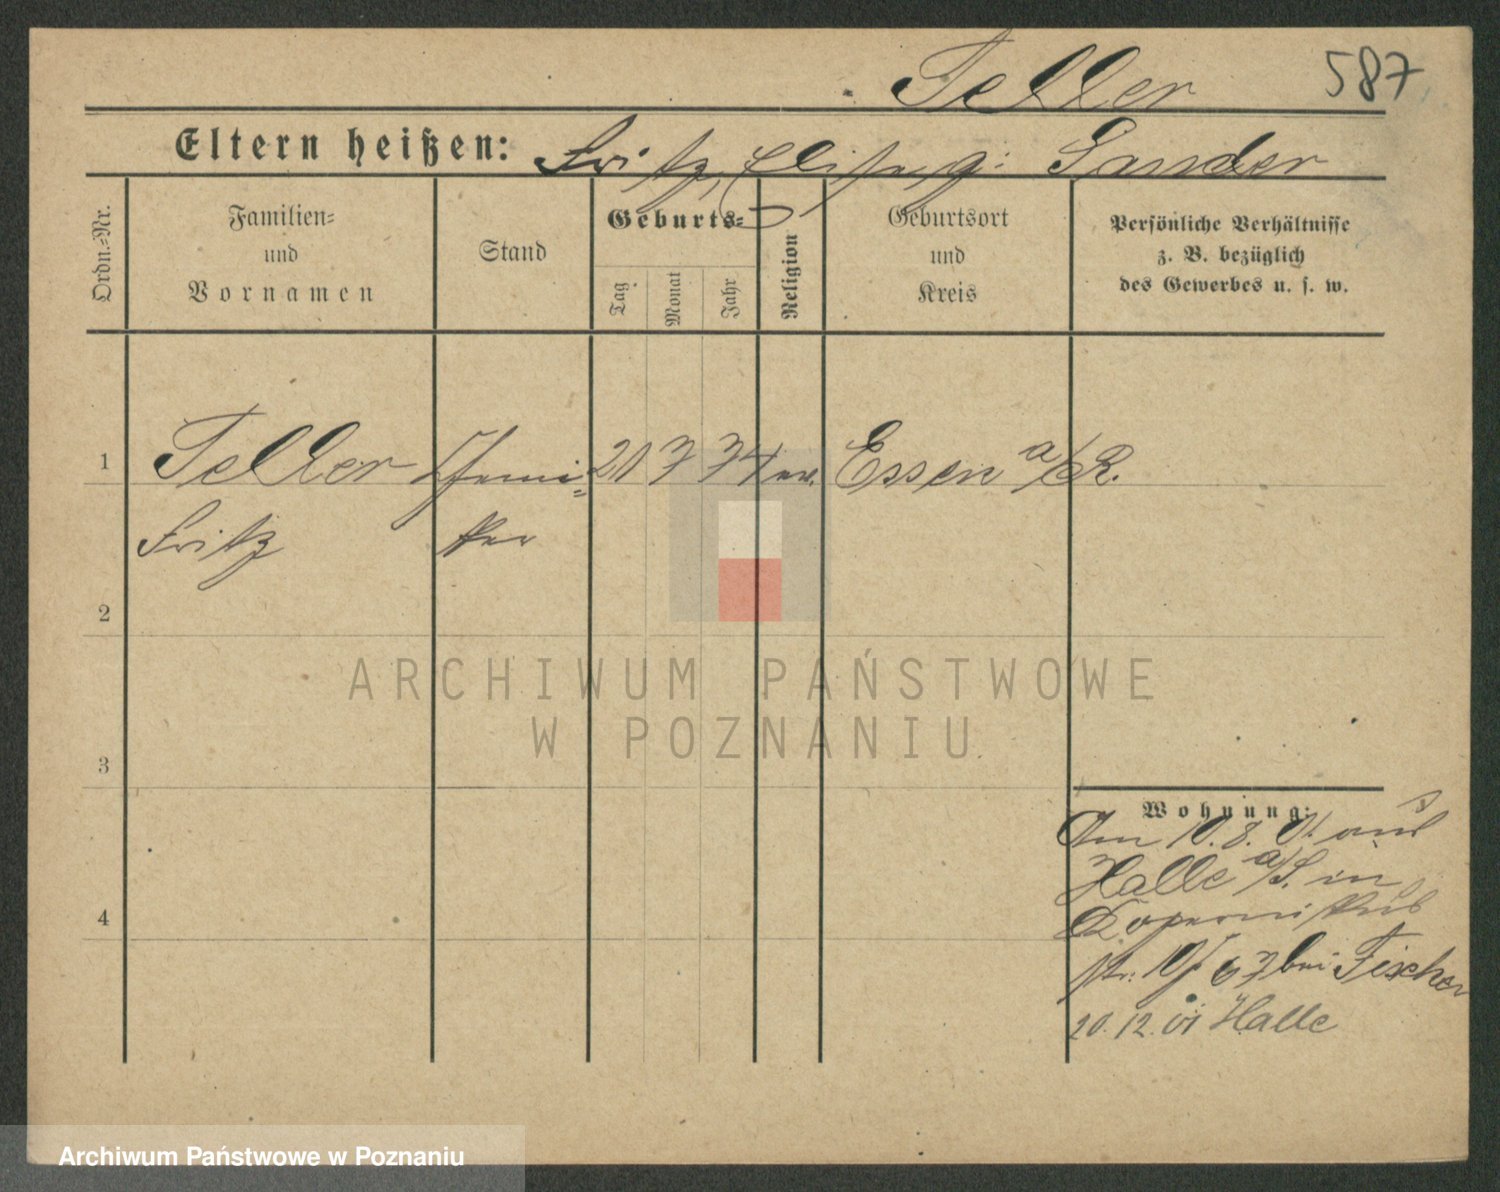 587
Teller
Eltern heißen: Fritz, Elise g: Sander
Ordn.-Nr.
Familien-
und
Vornamen
Stand
Geburts-
Tag
Monat
Jahr
Religion
Geburtsort
und
Kreis
Persönliche Verhältnisse
z. B. bezüglich
des Gewerbes u. s. w.
1 Teller Chemi- 21 3 74 ev. Essen a/R.
Fritz ker
2
3
4
Wohnung:
Am 10.8.01. aus
Halle a/S. in
Kopernikus
str: 10/ bei Fischer
20.12.01 Halle
ARCHIWUM PAŃSTWOWE
W POZNANIU
Archiwum Państwowe w Poznaniu